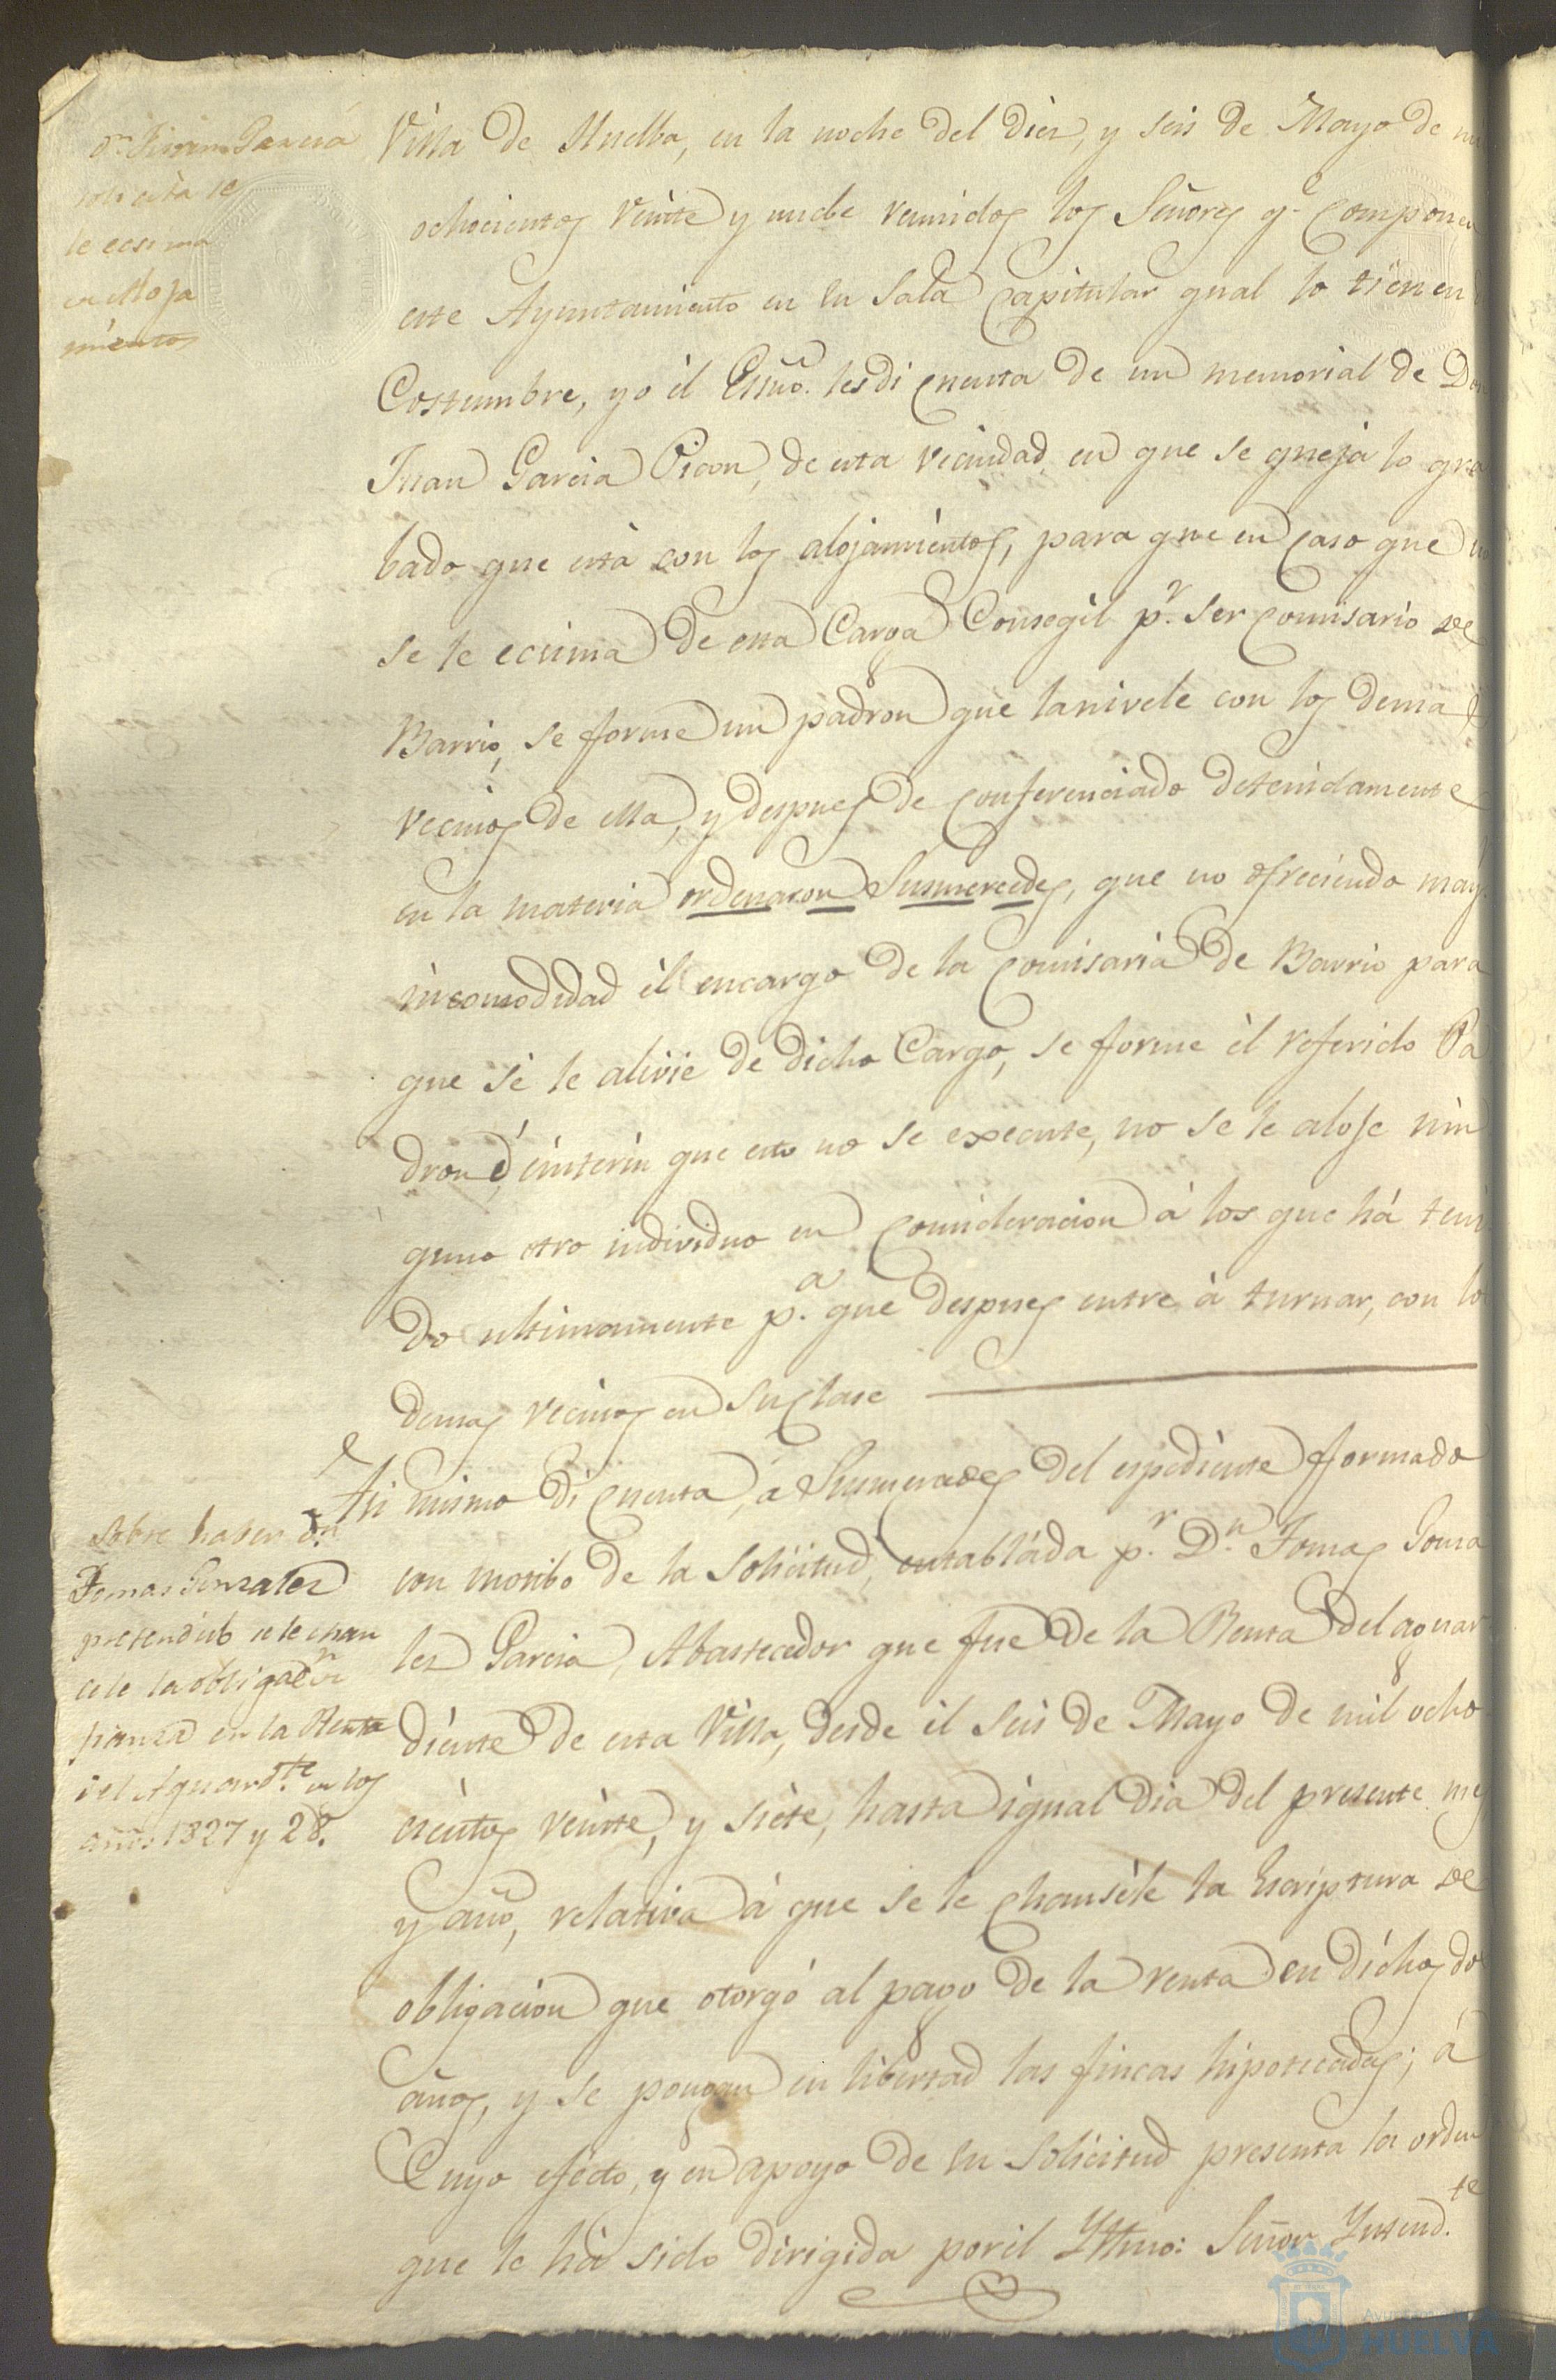 Dn Juan Garcia
solicita se
le ecsima
en Aloja
mientos
Villa de Huelba, en la noche del diez, y seis de Mayo de
ochocientos veinte y nuebe reunidos los Señores qe componen
este Ayuntamiento en su Sala Capitular qual lo tienen
Costumbre, yo el Essno. les di cuenta de un memorial de Don
Juan Garcia Picon, de esta vecindad en que se queja lo gra
bado que està con los alojamientos, para que en caso que no
se le ecsima de esta Carga Consegil pr. ser Comisario de
Barrio, se forme un padron que lo nivele con los demas
vecinos de ella, y despues de conferenciado detenidamente
en la materia ordenaron Susmercedes, que no ofreciendo may.
incomodidad èl encargo de la Comisaria de Barrio para
que se le alivie de dicho Cargo, se forme èl referido Pa
dron é ìnterin que esto no se execute, no se le aloje nin
guno otro individuo en consideracion à los que hà teni
do ultimamente pa. que despues entre à turnar, con lo
demas vecinos en su clase
Asi mismo di cuenta, à Susmercedes del espediente fformado
con motibo de la Solicitud, entablàda pr. Dn. Tomas Gonza
lez Garcia, Abastecedor que fue de la Renta del aguar
diente de esta Villa, desde el seis de Mayo de mil ocho
cientos veinte, y siete, hasta igual dia del presente mes
y año, relativa à que se le chansèle la Escriptura de
obligacion que otorgó al pago de la renta en dichos do
años, y se pongan en libertad las fincas hipotecadas; à
Cuyo efecto, y en apoyo de su Solicitud presenta la orden
que le hà sido dirigida por el Yltmo: Señor Yntendte.
Sobre haber Dn
Tomas Gonzalez
pretendido se le chan
cele la obligacn. de
fianza en la Renta
del Aguardte. en los
años 1827 y 28.
HUELVA